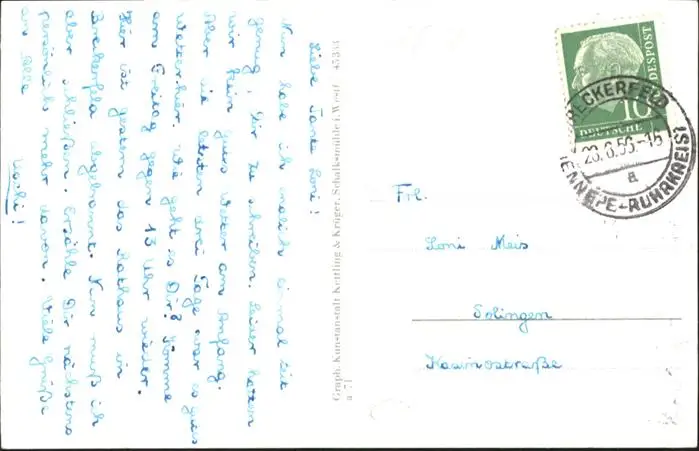 Liebe Tante Loni!
Nun habe ich endlich einmal Zeit
genug, Dir zu schreiben. Leider hatten
wir kein gutes Wetter am Anfang.
Aber die letzten drei Tage war es gutes
Wetter hier. Wie geht es Dir? Komme
am Freitag gegen 13 Uhr wieder.
Hier ist gestern das Rathaus in
Breckerfeld abgebrannt. Nun muß ich
aber schließen. Erzähle Dir nächstens
persönlich mehr davon. Viele Grüße
an alle
Uschi!
Graph. Kunstanstalt Kettling & Krüger, Schalksmühle i. Westf. 45333
a 71
10
DEUTSCHE BUNDESPOST
BRECKERFELD
28.8.56.-15
a
(ENNEPE-RUHRKREIS)
Frl.
Loni Meis
Solingen
Kasinostraße